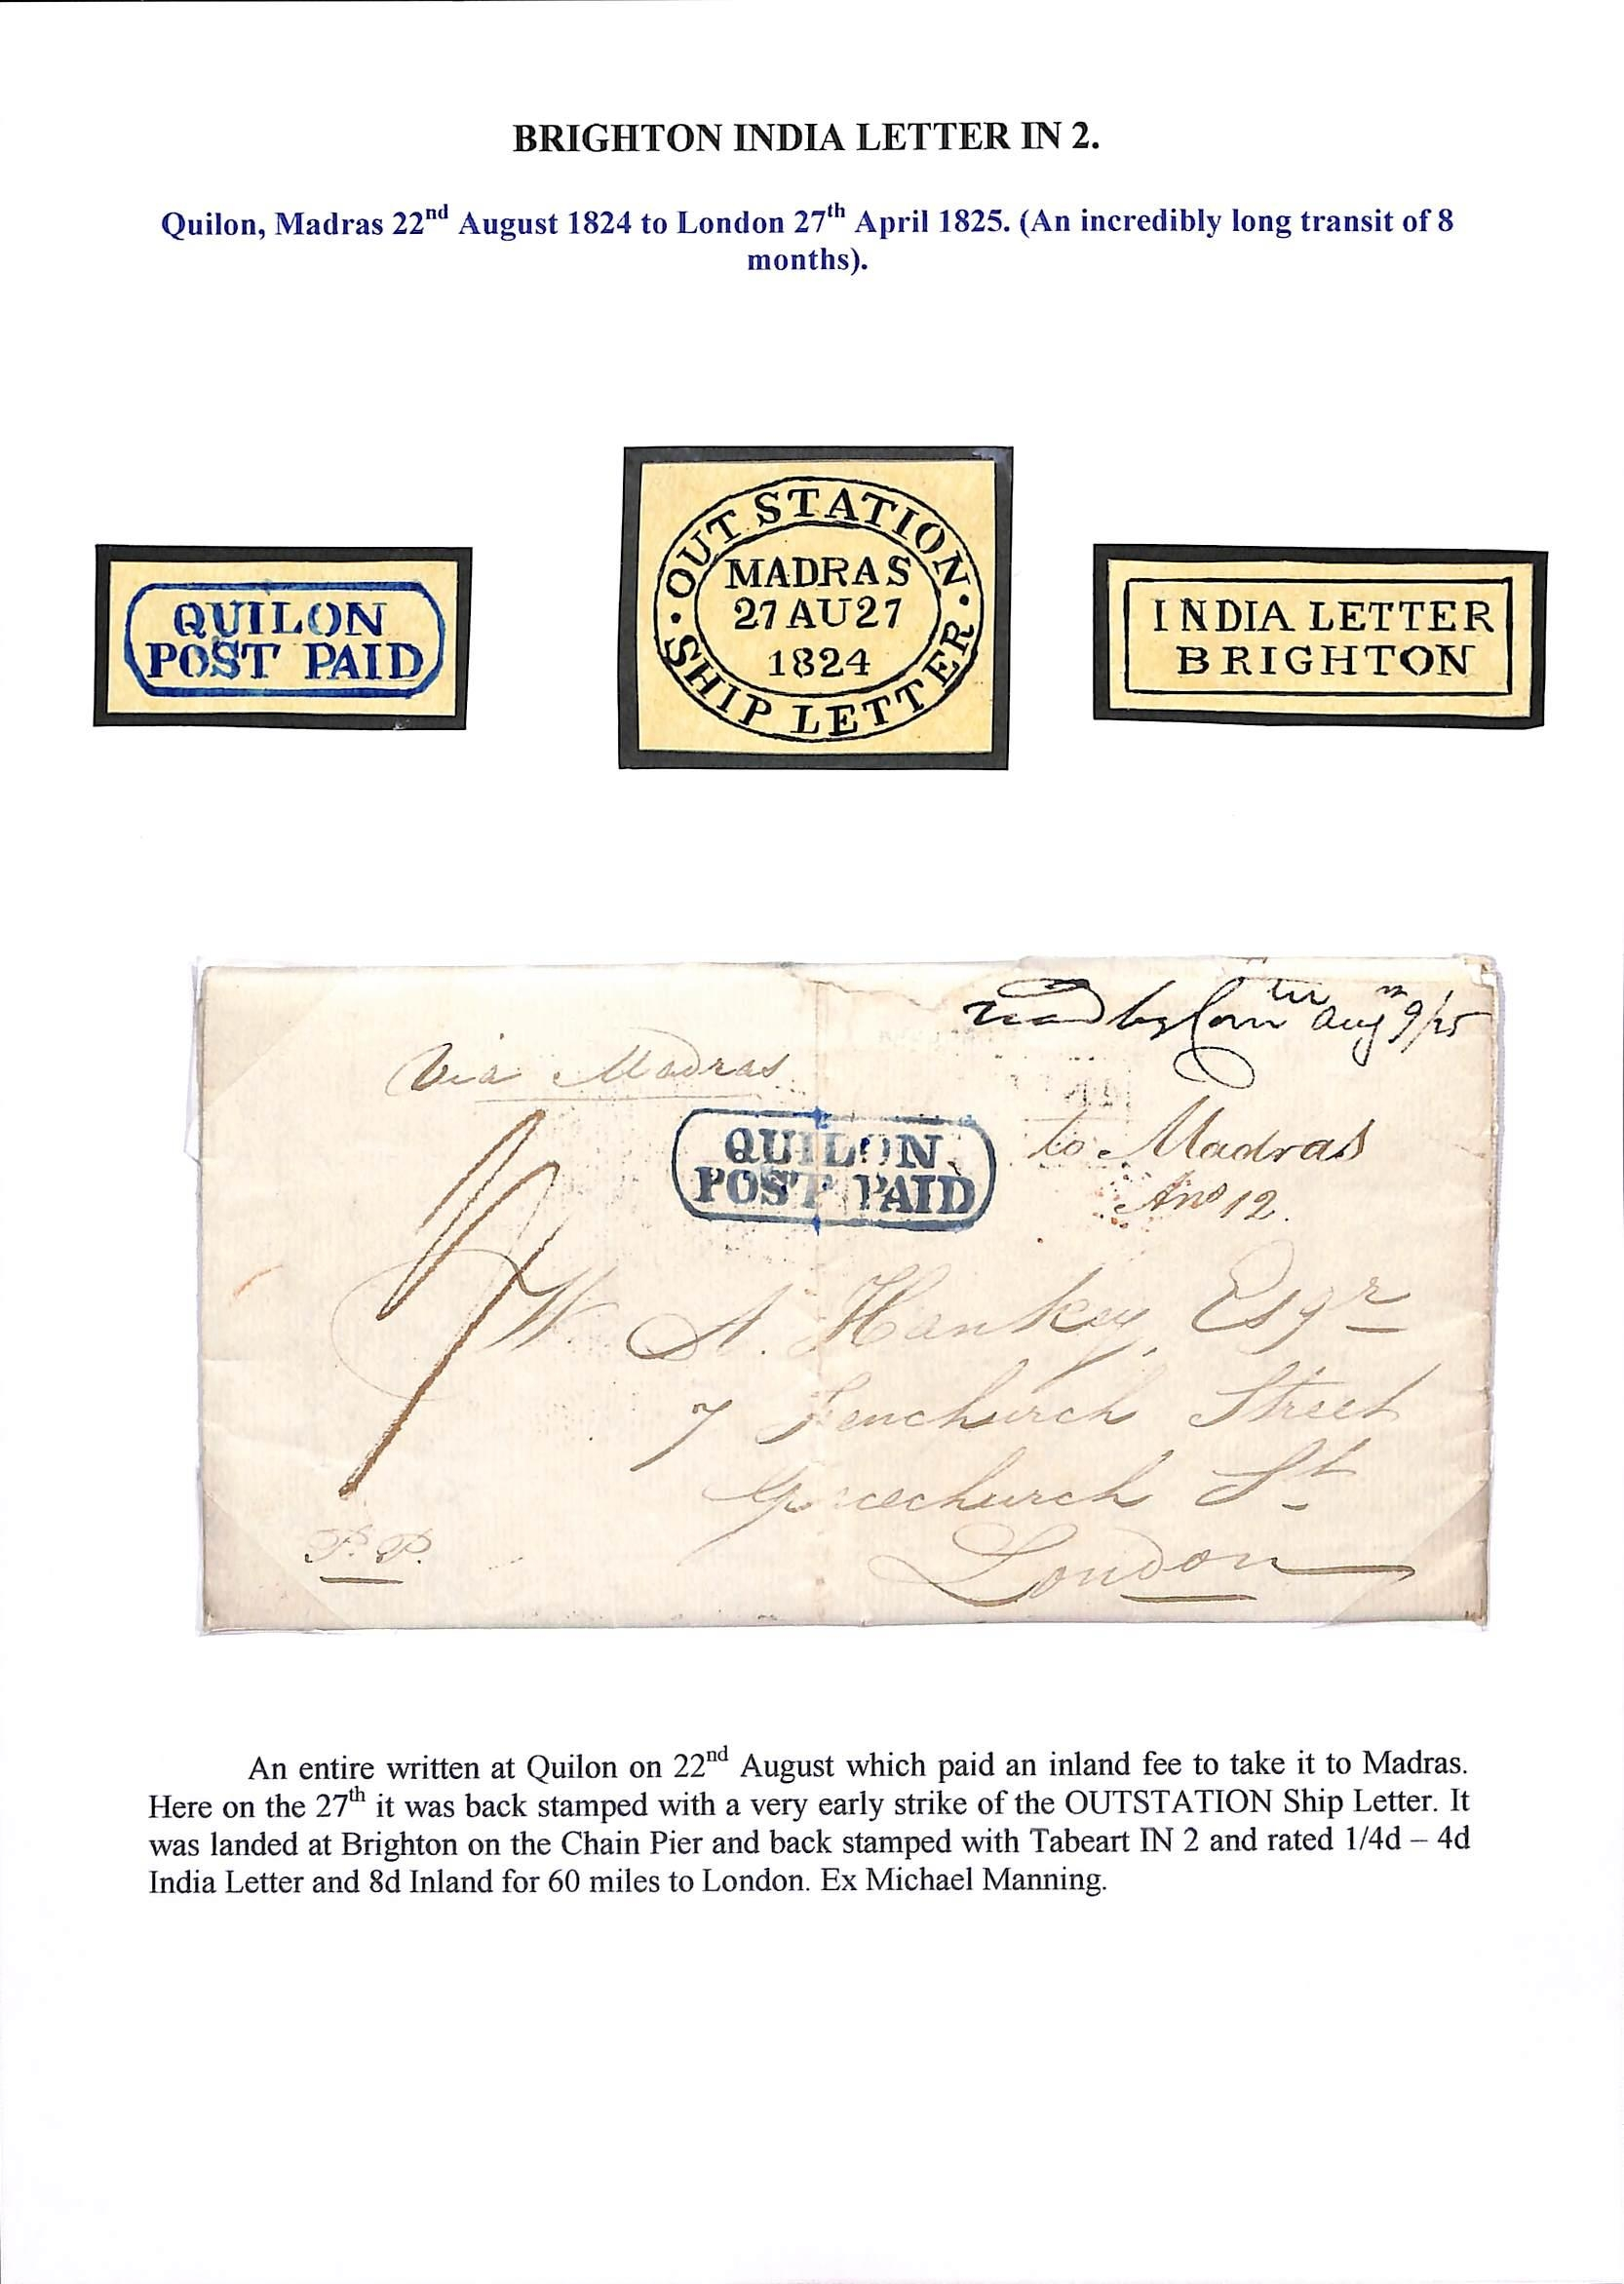 BRIGHTON INDIA LETTER IN 2.
Quilon, Madras 22nd August 1824 to London 27th April 1825. (An incredibly long transit of 8
months).
QUILON
POST PAID
OUT STATION
MADRAS
27 AU 27
1824
SHIP LETTER
INDIA LETTER
BRIGHTON
by Com Aug 9/25
Via Madras
QUILON
POST PAID
to Madras
Ans 12.
W. A. Hankey, Esqr
7 Fenchurch Street
Gracechurch St
London
P. P.
An entire written at Quilon on 22nd August which paid an inland fee to take it to Madras.
Here on the 27th it was back stamped with a very early strike of the OUTSTATION Ship Letter. It
was landed at Brighton on the Chain Pier and back stamped with Tabeart IN 2 and rated 1/4d – 4d
India Letter and 8d Inland for 60 miles to London. Ex Michael Manning.